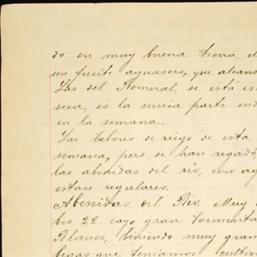 do en muy buena tierra, e
un fuerte aguasero, que alcans
Las del Romeral, se está es
seca, es la unica parte en
en la semana.
Las labores de riego de esta
semana, pero se han regado
las abenidas del rio, con ag
estan regulares.
Abenidas del Rio. Muy
bis 22 cayo gran tormenta
Blanes, biniendo muy gran
que teniamos cultin